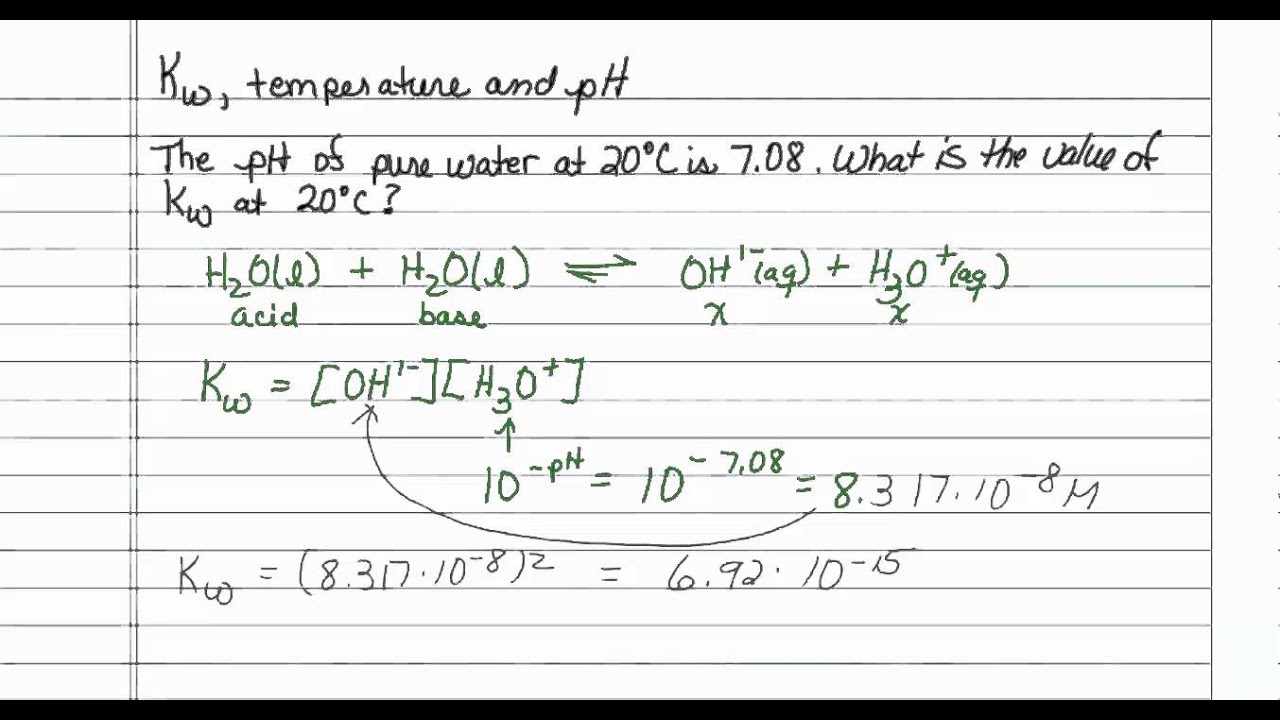 Kw, temperature and pH
The pH of pure water at 20°C is 7.08. What is the value of
Kw at 20°C?
H₂O(l) + H₂O(l) ⇌ OH¹⁻(aq) + H₃O⁺(aq)
acid base x x
Kw = [OH¹⁻][H₃O⁺]
↑
10^-pH = 10^-7.08 = 8.317·10⁻⁸ M
Kw = (8.317·10⁻⁸)² = 6.92·10⁻¹⁵